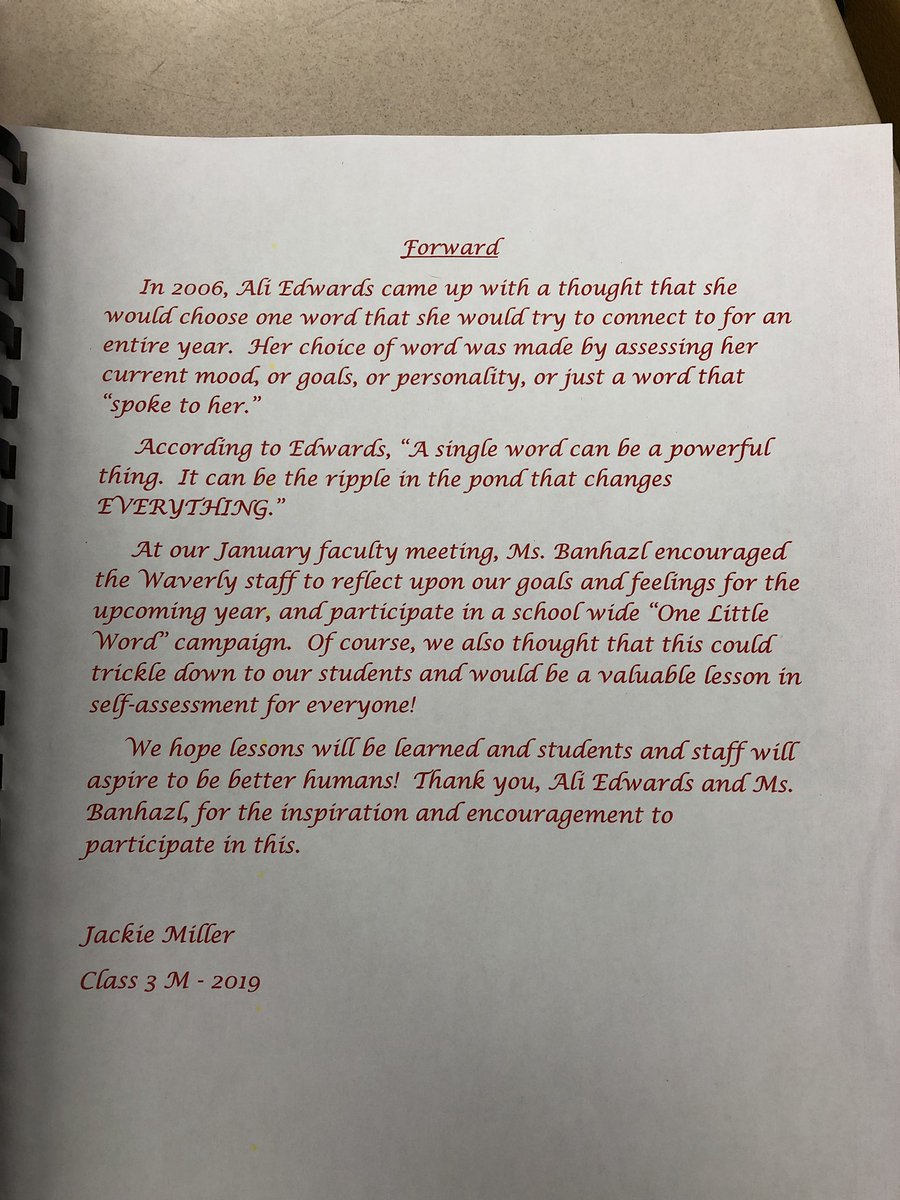 Forward
In 2006, Ali Edwards came up with a thought that she
would choose one word that she would try to connect to for an
entire year.  Her choice of word was made by assessing her
current mood, or goals, or personality, or just a word that
“spoke to her.”
According to Edwards, “A single word can be a powerful
thing.  It can be the ripple in the pond that changes
EVERYTHING.”
At our January faculty meeting, Ms. Banhazl encouraged
the Waverly staff to reflect upon our goals and feelings for the
upcoming year, and participate in a school wide “One Little
Word” campaign.  Of course, we also thought that this could
trickle down to our students and would be a valuable lesson in
self-assessment for everyone!
We hope lessons will be learned and students and staff will
aspire to be better humans!  Thank you, Ali Edwards and Ms.
Banhazl, for the inspiration and encouragement to
participate in this.
Jackie Miller
Class 3 M - 2019